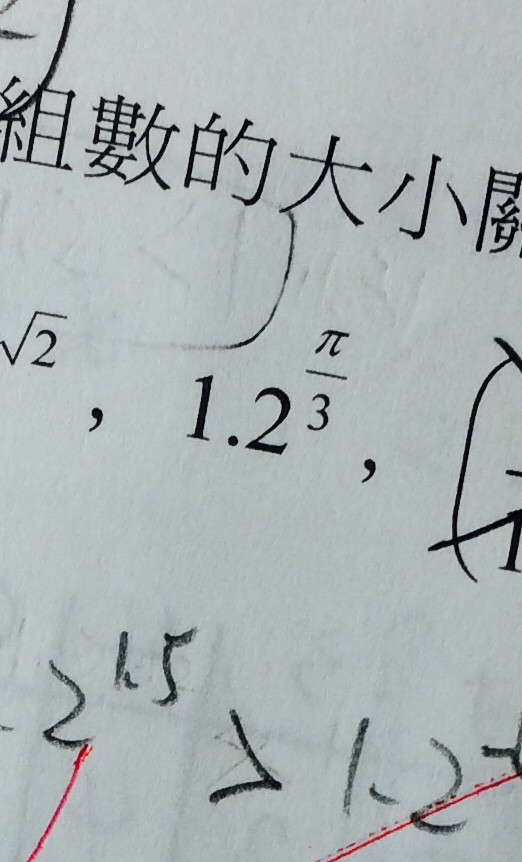 組數的大小關
√2 , 1.2^(π/3) , (
2^1.5 > 1.2